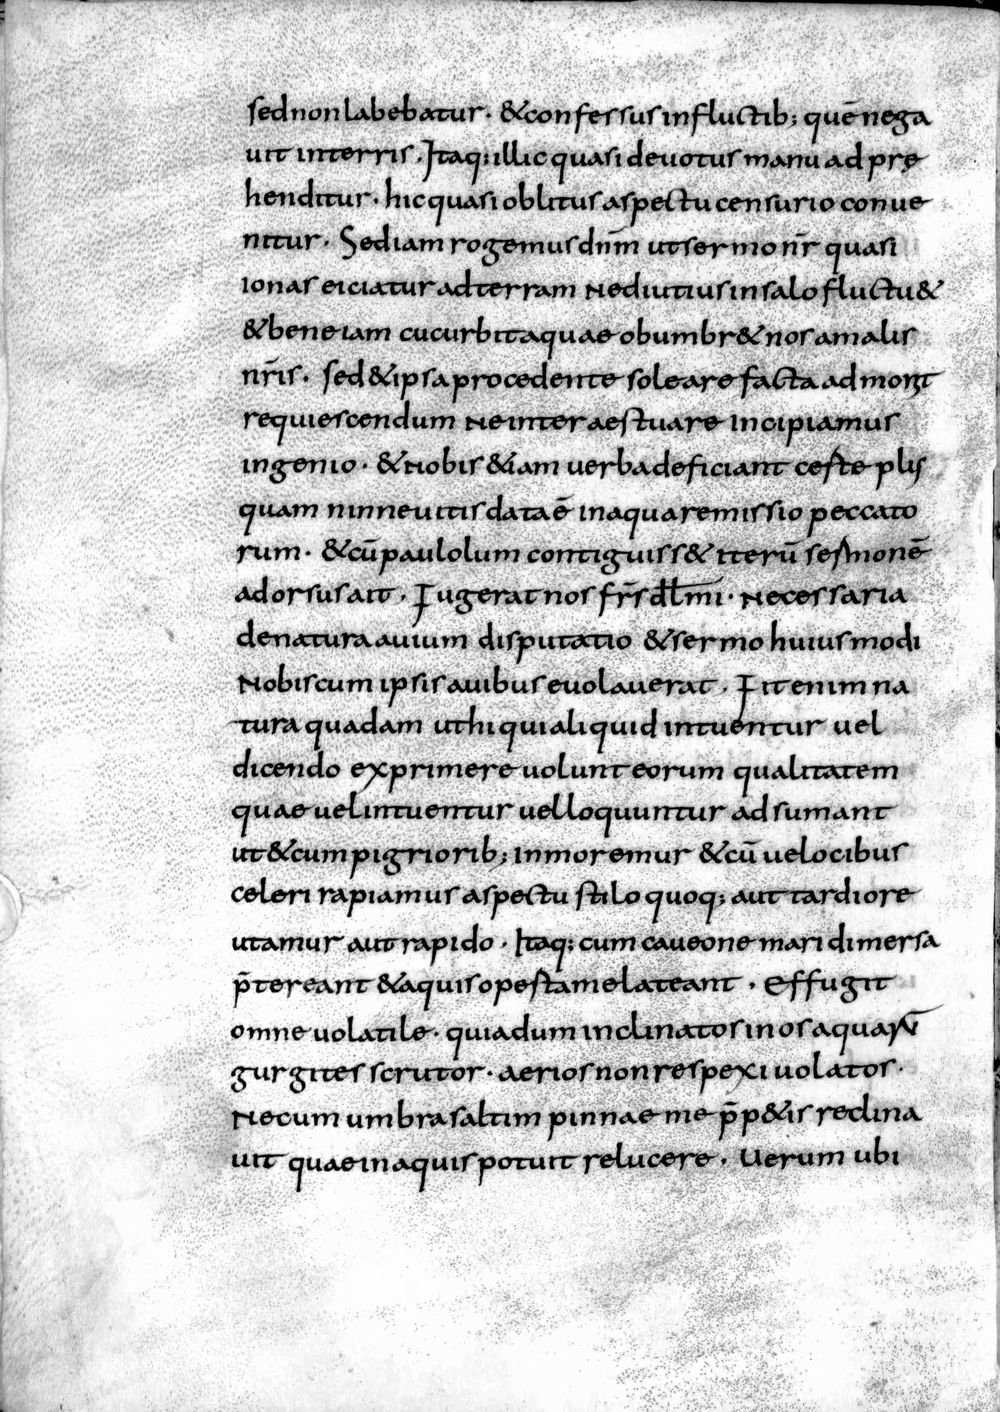 sed non labebatur · & confessus in fluctib; quē nega
uit in terris . Itaq; illic quasi deuotus manu ad prę
henditur · hic quasi oblitus aspectu censurio conue
nitur · Sed iam rogemus dn̄m ut sermo nr̄ quasi
ionas eiciatur ad terram ne diutius in salo fluctu&
& bene iam cucurbita quae obumbr& nos a malis
nr̄is · sed & ipsa procedente sole arefacta admon&
requiescendum ne inter aestuare incipiamus
ingenio · & nobis &iam uerba deficiant certe plus
quam nineuitis data ē in aqua remissio peccato
rum · & cū paulolum contiguiss& iterū sermonē
adorsus ait · Fugerat nos fr̄s dil̄mi · necessaria
de natura auium disputatio & sermo huiusmodi
nobiscum ipsis auibus euolauerat · Fit enim na
tura quadam ut hi qui aliquid intuentur uel
dicendo exprimere uolunt eorum qualitatem
quae uel intuentur uel loquuntur adsumant
ut & cum pigriorib; inmoremur & cū uelocibus
celeri rapiamur aspectu stilo quoq; aut tardiore
utamur aut rapido · Itaq; cum caueo ne mari dimersa
p̄tereant & aquis operta me lateant · Effugit
omne uolatile · quia dum inclinatos in os aquarū
gurgites scrutor · aerios non respexi uolatos ·
nec um umbra saltim pinnae me p̄p&is reclina
uit quae in aquis potuit relucere · Uerum ubi